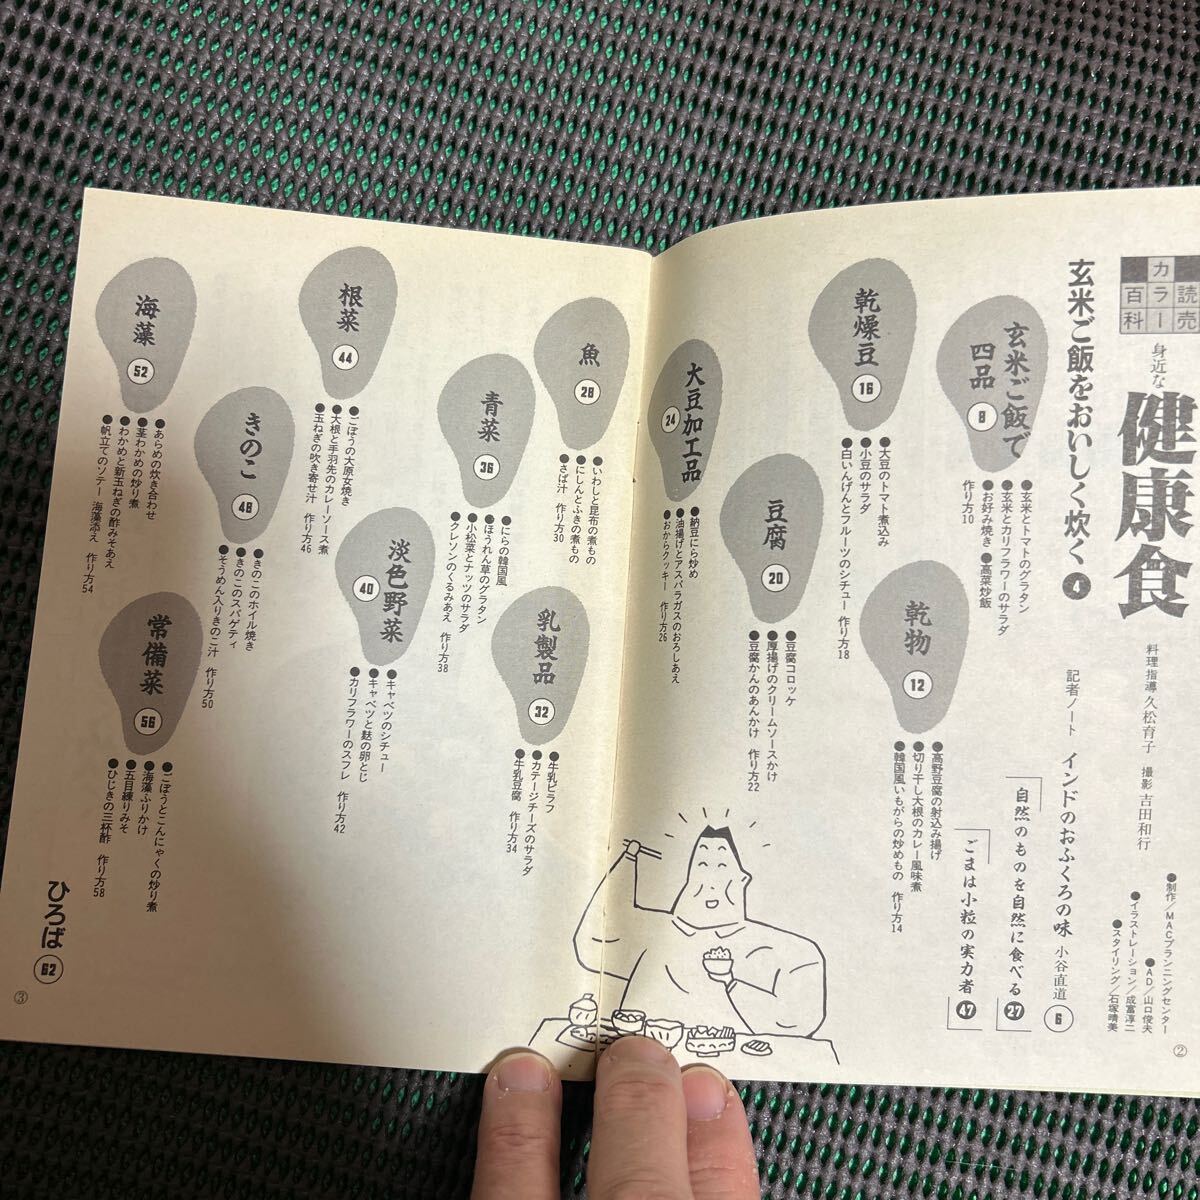 読売
カラー
百科
身近な
健康食
料理指導 久松育子 撮影 吉田和行
●制作/MACプランニングセンター
●AD/山口俊夫
●イラストレーション/成富淳二
●スタイリング/石塚晴美
玄米ご飯をおいしく炊く 4
記者ノート インドのおふくろの味 小谷直道 6
自然のものを自然に食べる 27
ごまは小粒の実力者 47
玄米ご飯で四品
8
●玄米とトマトのグラタン
●玄米とカリフラワーのサラダ
●お好み焼き ●高菜炒飯
作り方10
乾物
12
●高野豆腐の射込み揚げ
●切り干し大根のカレー風味煮
●韓国風いもがらの炒めもの 作り方14
乾燥豆
16
●大豆のトマト煮込み
●小豆のサラダ
●白いんげんとフルーツのシチュー 作り方18
豆腐
20
●豆腐コロッケ
●厚揚げのクリームソースかけ
●豆腐かんのあんかけ 作り方22
大豆加工品
24
●納豆にら炒め
●油揚げとアスパラガスのおろしあえ
●おからクッキー 作り方26
②
魚
28
●いわしと昆布の煮もの
●にしんとふきの煮もの
●さば汁 作り方30
乳製品
32
●牛乳ピラフ
●カテージチーズのサラダ
●牛乳豆腐 作り方34
青菜
36
●にらの韓国風
●ほうれん草のグラタン
●小松菜とナッツのサラダ
●クレソンのくるみあえ 作り方38
淡色野菜
40
●キャベツのシチュー
●キャベツと麩の卵とじ
●カリフラワーのスフレ 作り方42
根菜
44
●ごぼうの大原女焼き
●大根と手羽先のカレーソース煮
●玉ねぎの吹き寄せ汁 作り方46
きのこ
48
●きのこのホイル焼き
●きのこのスパゲティ
●そうめん入りきのこ汁 作り方50
海藻
52
●あらめの炊き合わせ
●茎わかめの炒り煮
●わかめと新玉ねぎの酢みそあえ
●帆立てのソテー 海藻添え 作り方54
常備菜
56
●ごぼうとこんにゃくの炒り煮
●海藻ふりかけ
●五目練りみそ
●ひじきの三杯酢 作り方58
ひろば 62
③